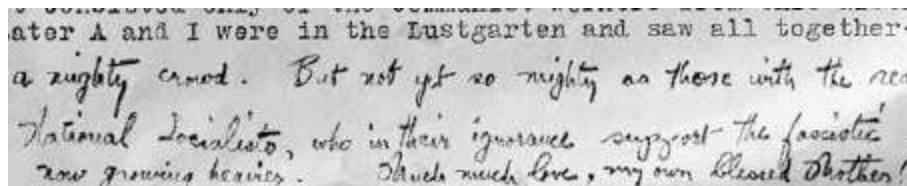 ater A and I were in the Lustgarten and saw all together
a mighty crowd. But not yet so mighty as those with the
National Socialists, who in their ignorance support the fascistic
now growing heavier. Much much love, my own blessed Mother!